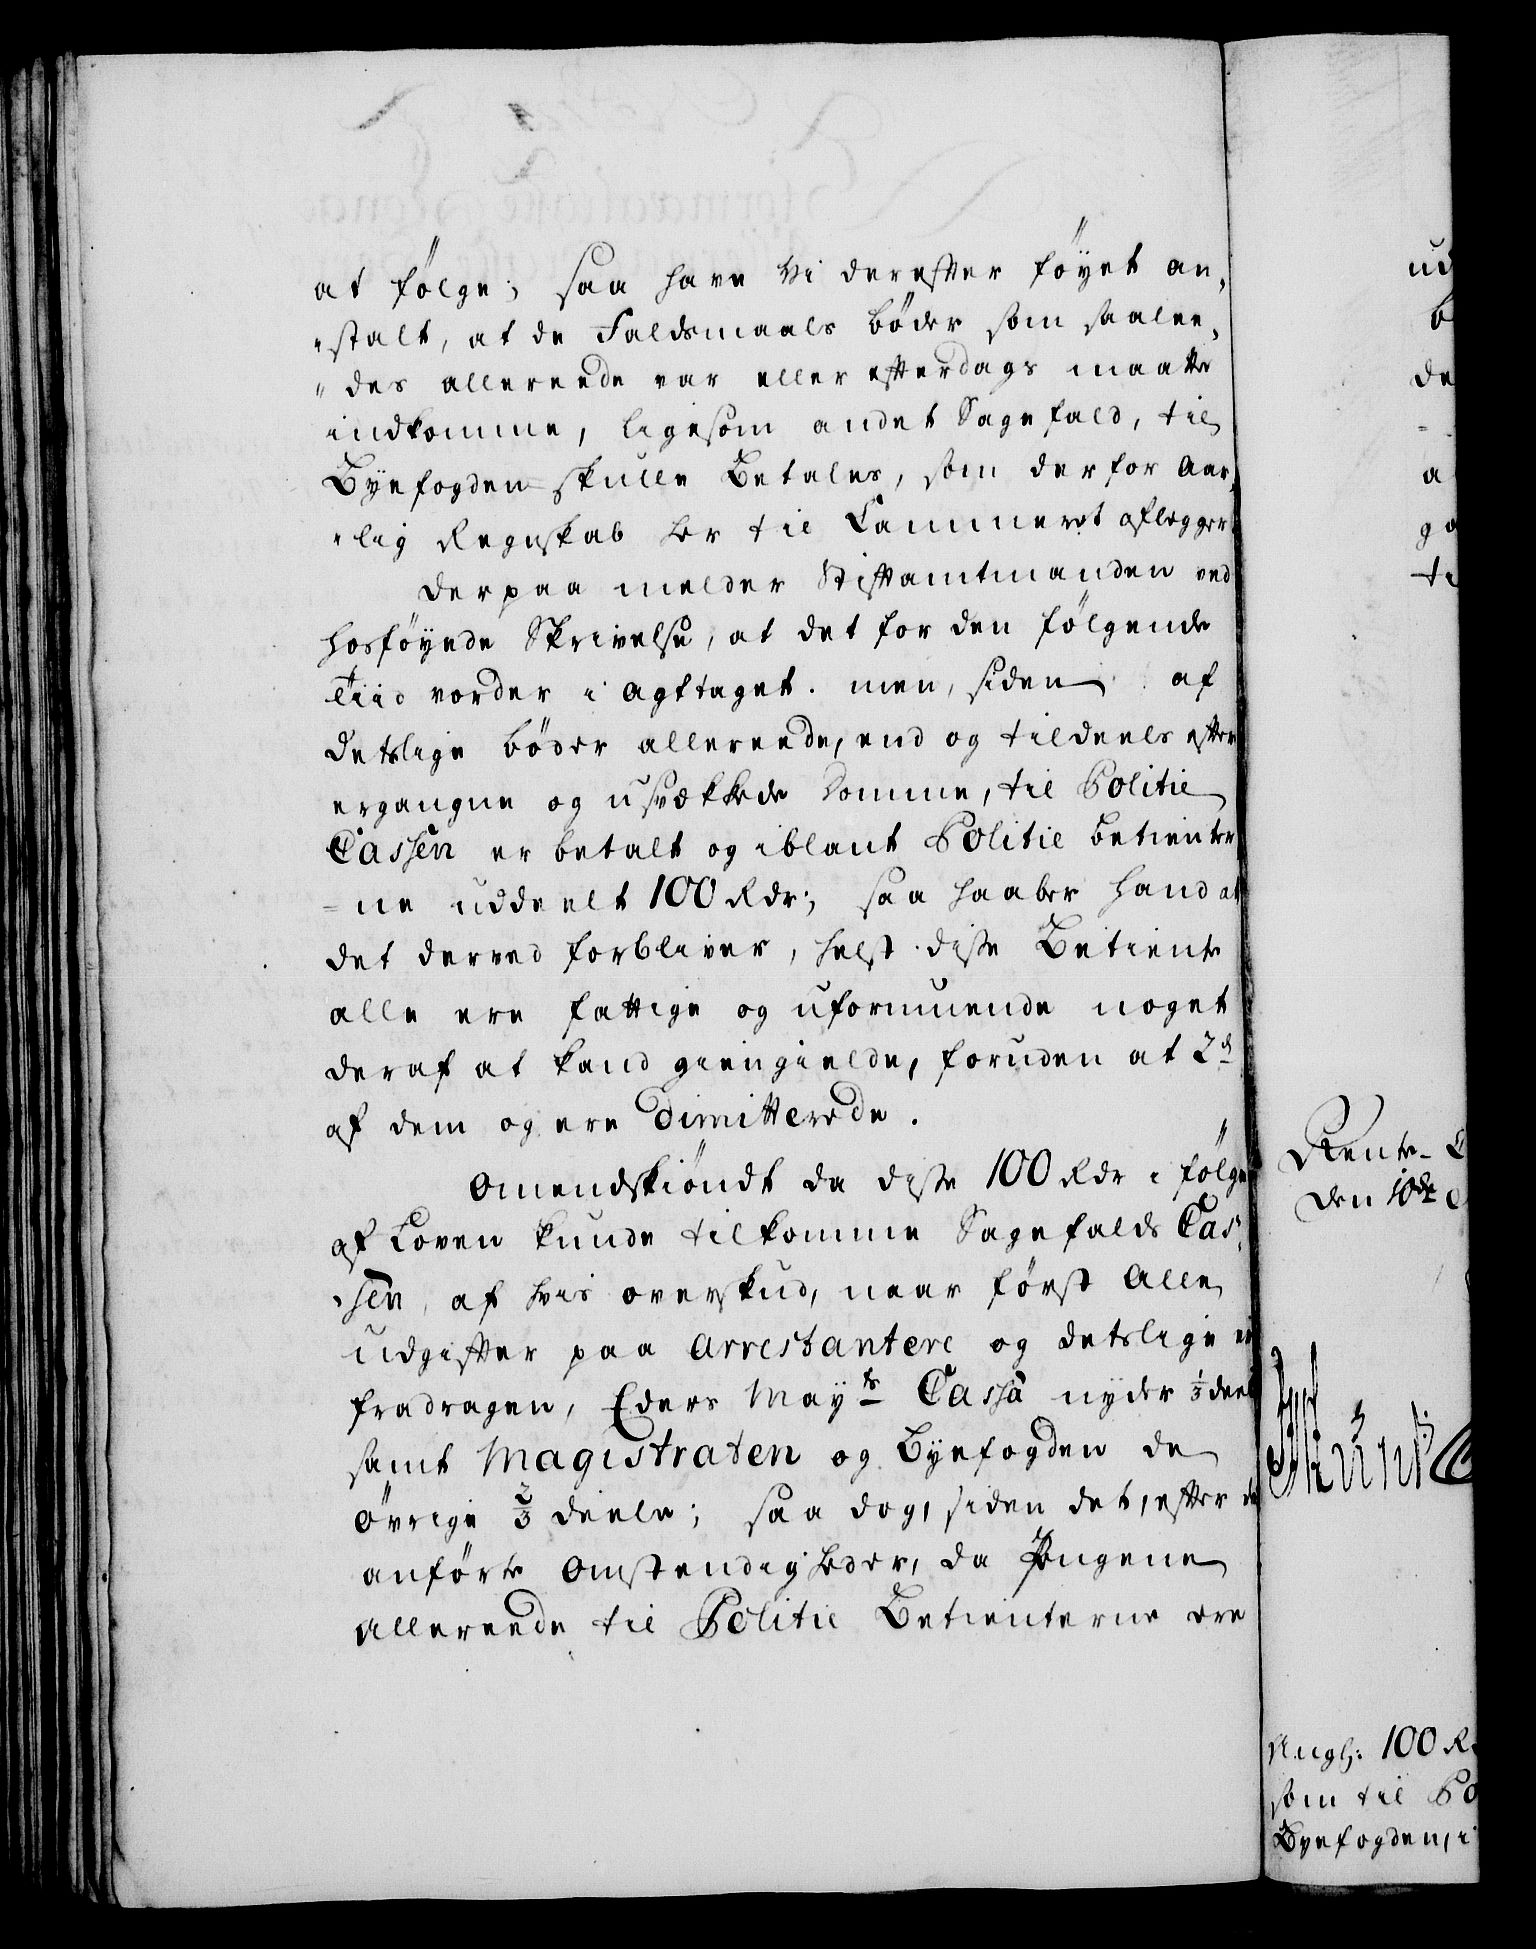 at følge; saa have Vi derefter føyet an,
"stalt, at de Faldsmaals bøder som saalee,
"des allereede var eller efterdags maatte
indkomme, ligesom andet Sagefald, til
Byefogden skulle Betales, som derfor Aar,
"lig Regnskab her til Cammeret aflegger.
Derpaa melder Stiftamtmanden ved
hosføyede Skrivelse, at det for den følgende
Tiid vorder i agttaget. men, siden af
detslige bøder allereede, end og tildeels efter
ergangne og usvækkede Domme, til Politie
Cassen er betalt og iblant Politie betiente
=ne uddeelt 100 Rdr; saa haaber hand at
det derved forbliver, helst disse Betiente
alle ere fattige og uformuende noget
deraf at kand giengielde, foruden at 2de
af dem og ere Dimitterede.
Omendskiøndt da disse 100 Rdr i følge
af Loven kunde tilkomme Sagefalds Cas,
"sen, af hvis overskud, naar først Alle
udgifter paa Arrestantere og detslige er
fradragen, Eders Mayts Cassa nyder 1/3 deel
samt Magistraten og Byefogden de
øvrige 2/3 deele; saa dog, siden det, efter de
anførte Omstendigheder, da Pengene
allereede til Politie Betienterne ere
ud
b
de
a
ga
ti
Rente-C
den 10de
Angl: 100 R
som til Po
Byefogden, i